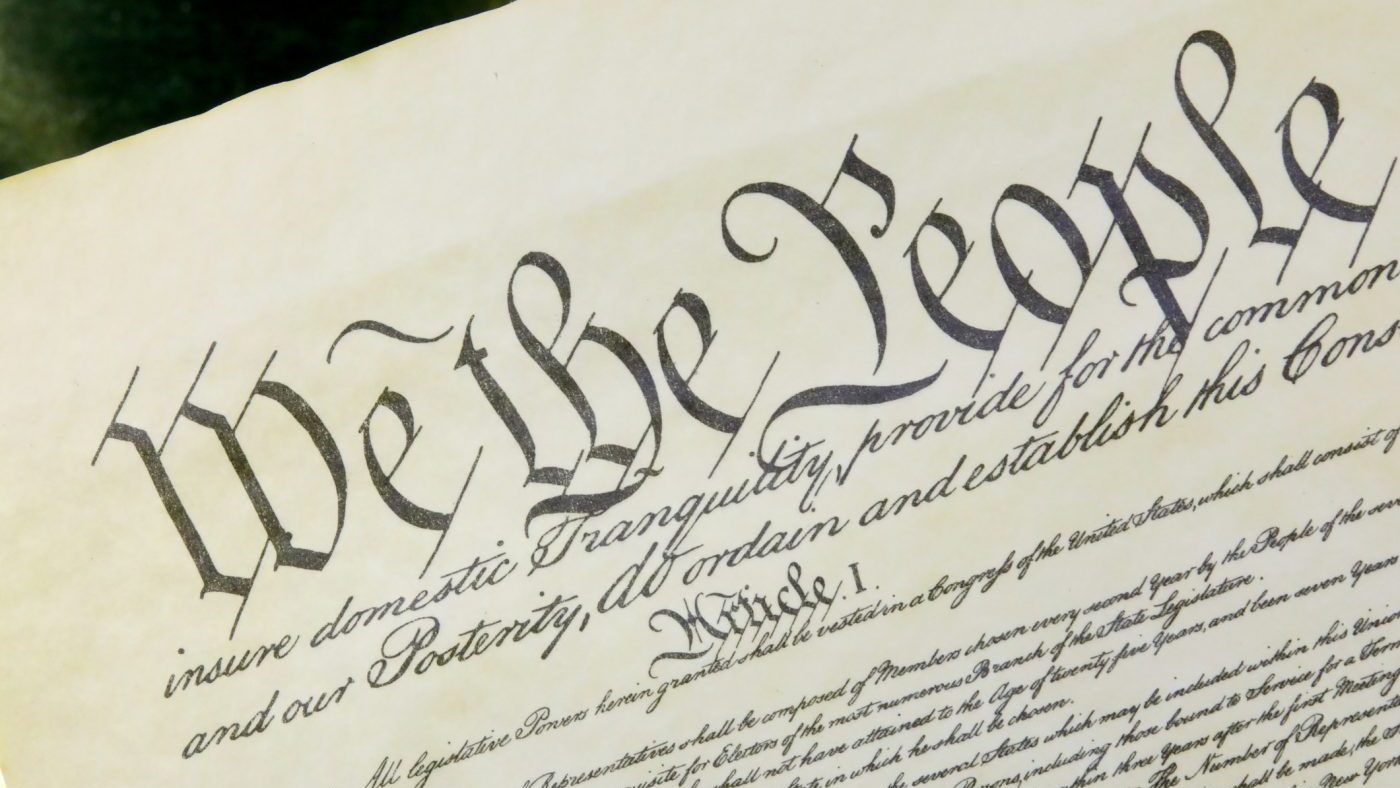 We the People
insure domestic Tranquility, provide for the common
and our Posterity, do ordain and establish this Cons
Article. I.
All legislative Powers herein granted shall be vested in a Congress of the United States, which shall consist of
Representatives shall be composed of Members chosen every second Year by the People of the sev
quisite for Electors of the most numerous Branch of the State Legislature.
shall not have attained to the Age of twenty five Years, and been seven Years
in which he shall be chosen.
the several States which may be included within this Union
including those bound to Service for a Term
within three Years after the first Meeting
The Number of Represent
shall be made, the
New York